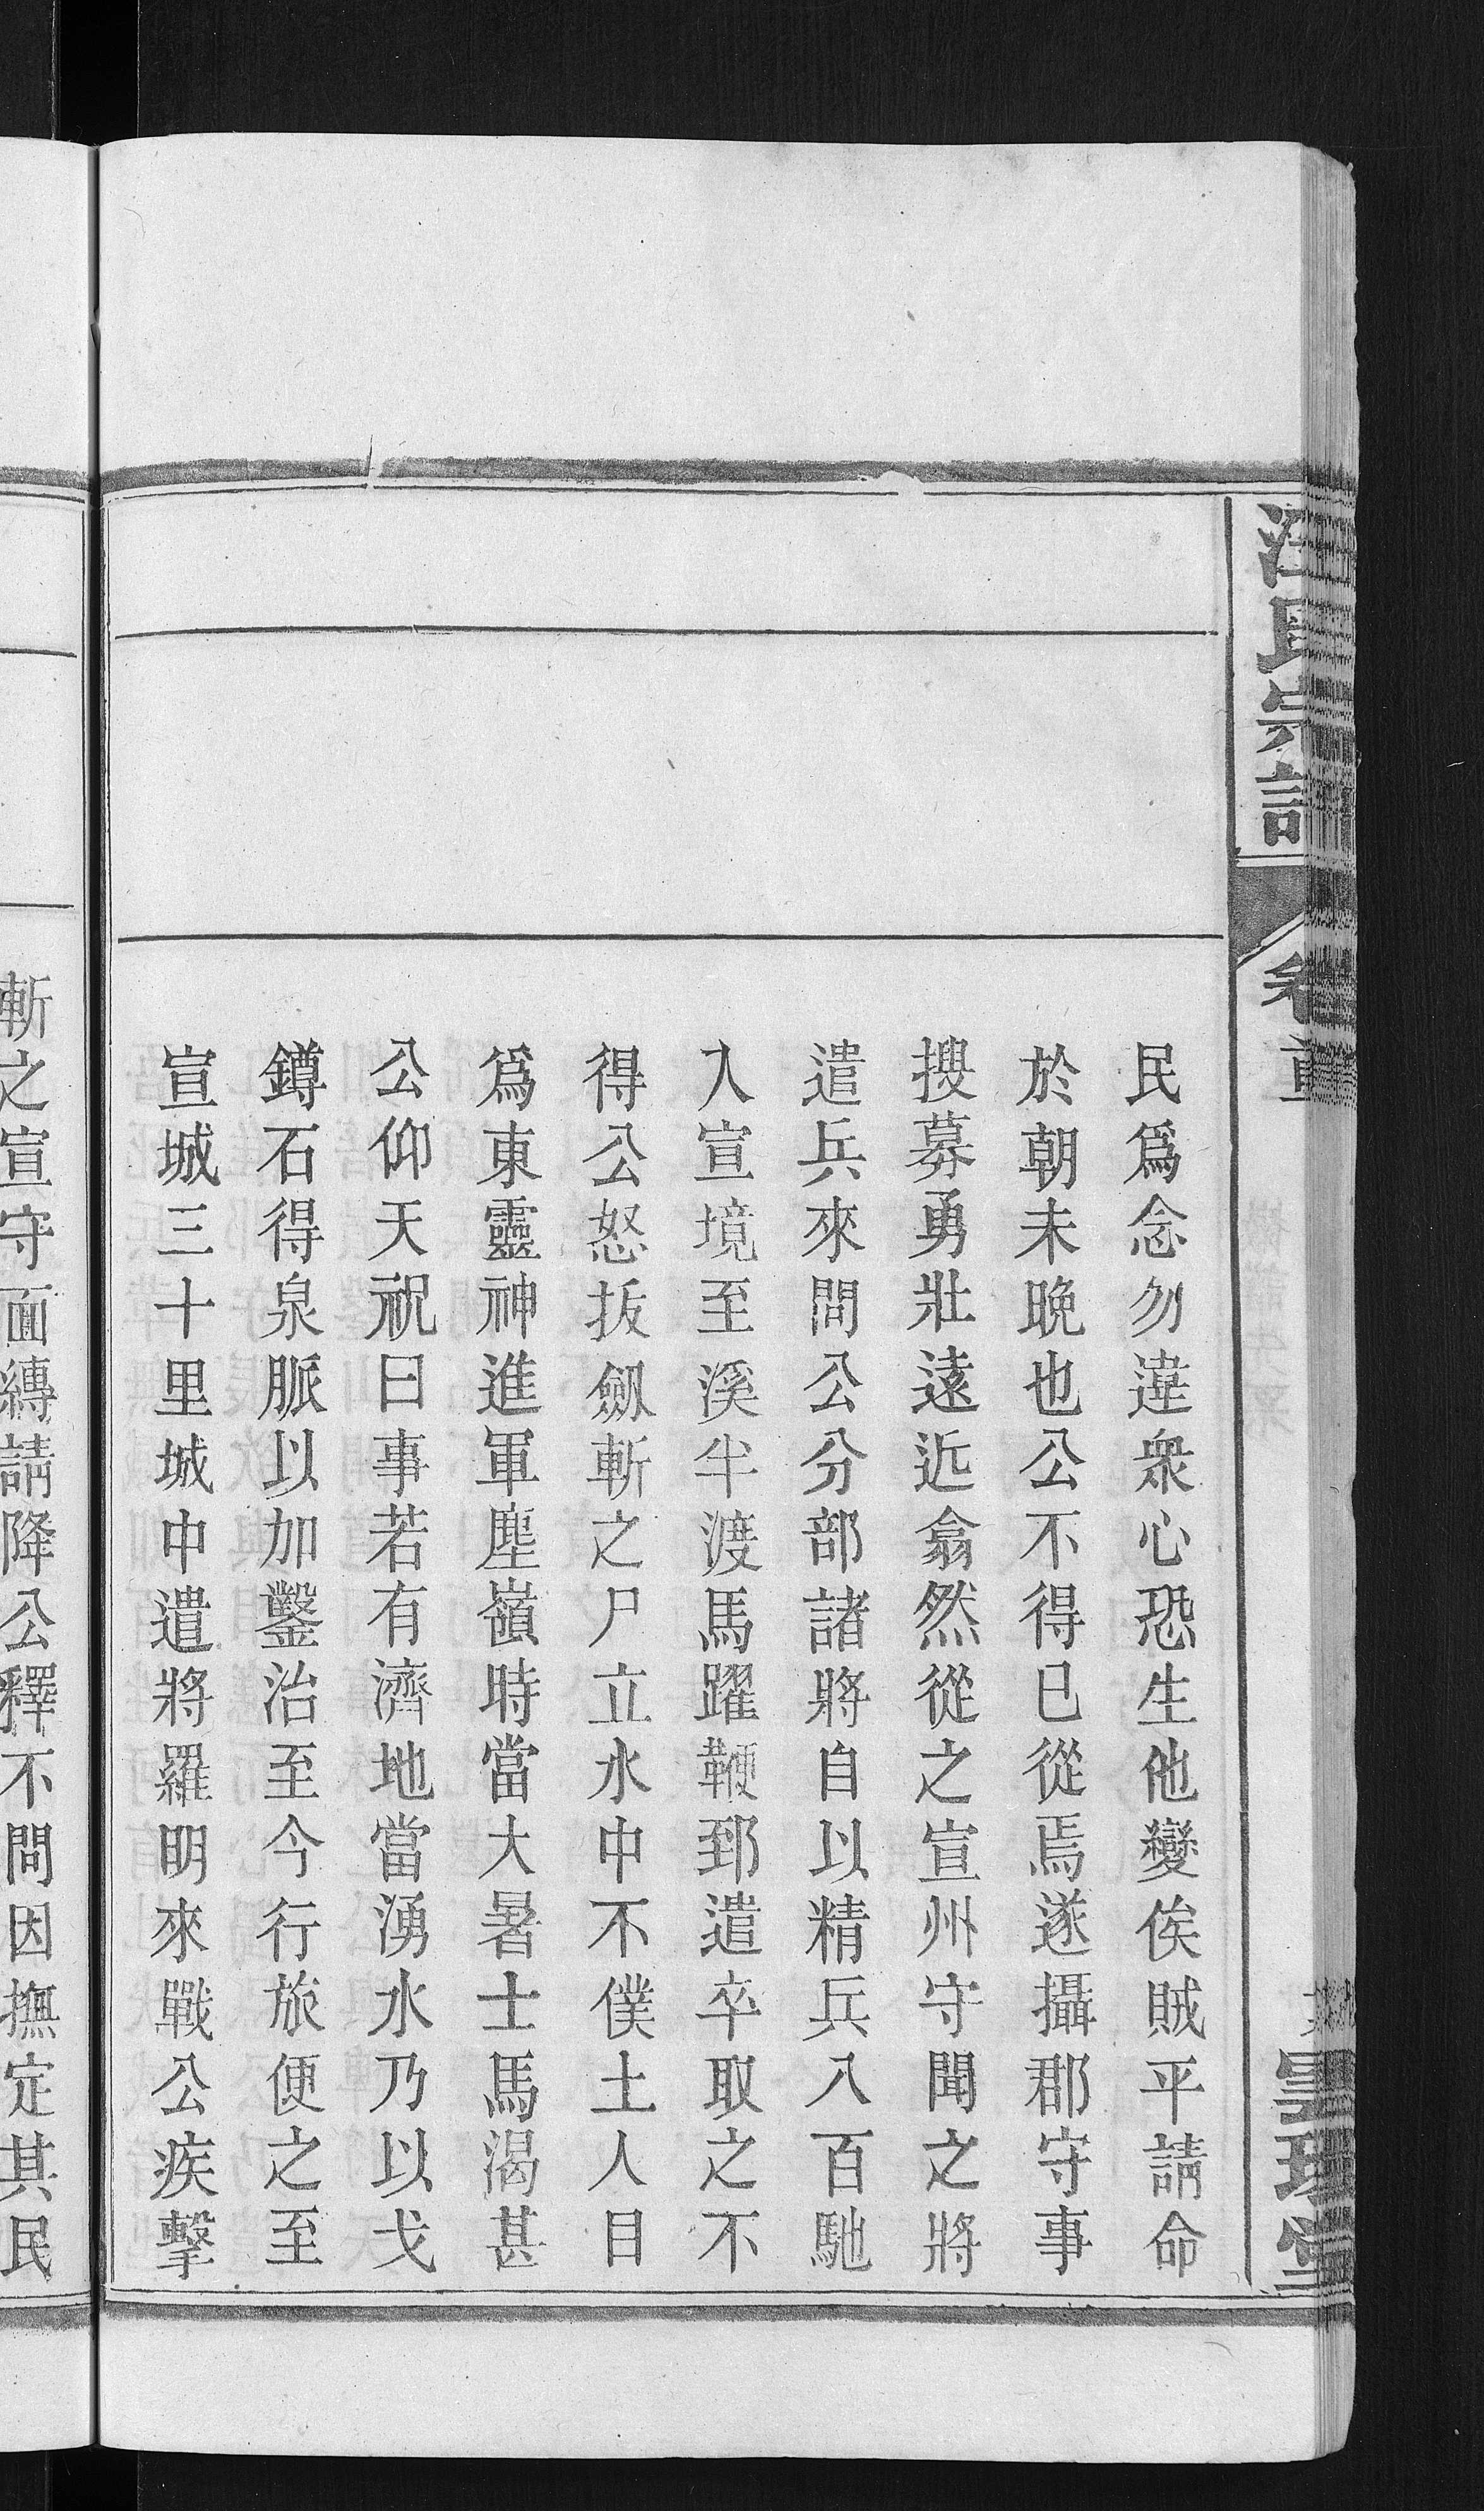 汪氏宗譜
卷首
民爲念勿違衆心恐生他變俟賊平請命
於朝未晩也公不得已從焉遂攝郡守事
搜募勇壯遠近翕然從之宣州守聞之將
遣兵來問公分部諸將自以精兵八百馳
入宣境至溪半渡馬躍鞭郅遣卒取之不
得公怒拔劔斬之尸立水中不僕土人目
爲東靈神進軍塵嶺時當大暑士馬渴甚
公仰天祝曰事若有濟地當湧水乃以戈
鐏石得泉脈以加鑿治至今行旅便之至
宣城三十里城中遣將羅明來戰公疾擊
斬之宣守面縛請降公釋不問因撫定其民